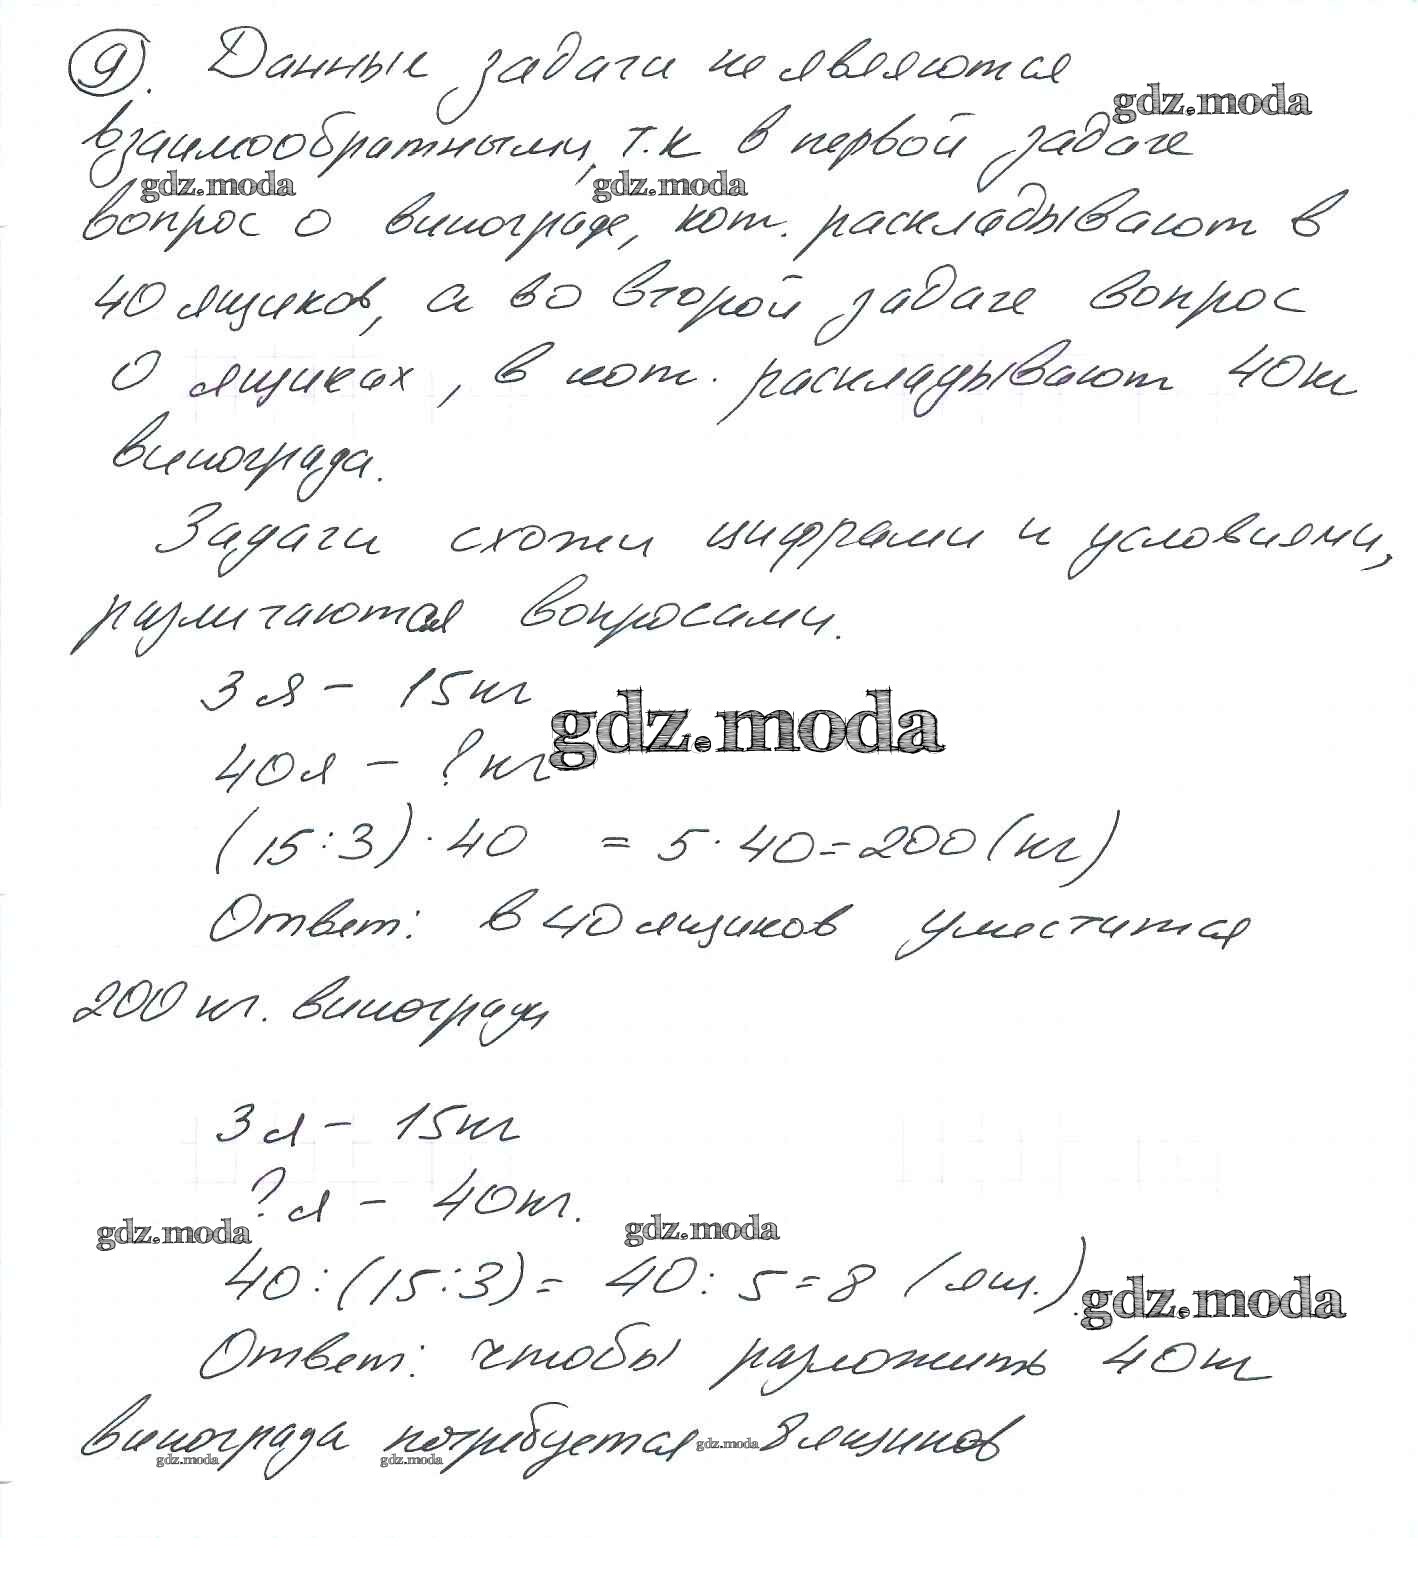 9. Данные задачи не являются
gdz.moda
взаимообратными, т.к в первой задаче
gdz.moda gdz.moda
вопрос о винограде, кот. раскладывают в
40 ящиков, а во второй задаче вопрос
о ящиках, в кот. раскладывают 40кг
винограда.
Задачи схожи цифрами и условиями,
различаются вопросами.
3я - 15кг
gdz.moda
40я - ?кг
(15:3)·40 = 5·40=200(кг)
Ответ: в 40 ящиков уместится
200 кг. винограда
3я - 15кг
?я - 40кг.
gdz.moda gdz.moda
40:(15:3)= 40:5=8 (ящ.)
gdz.moda
Ответ: чтобы разложить 40кг
винограда потребуется gdz.moda 8 ящиков
gdz.moda gdz.moda